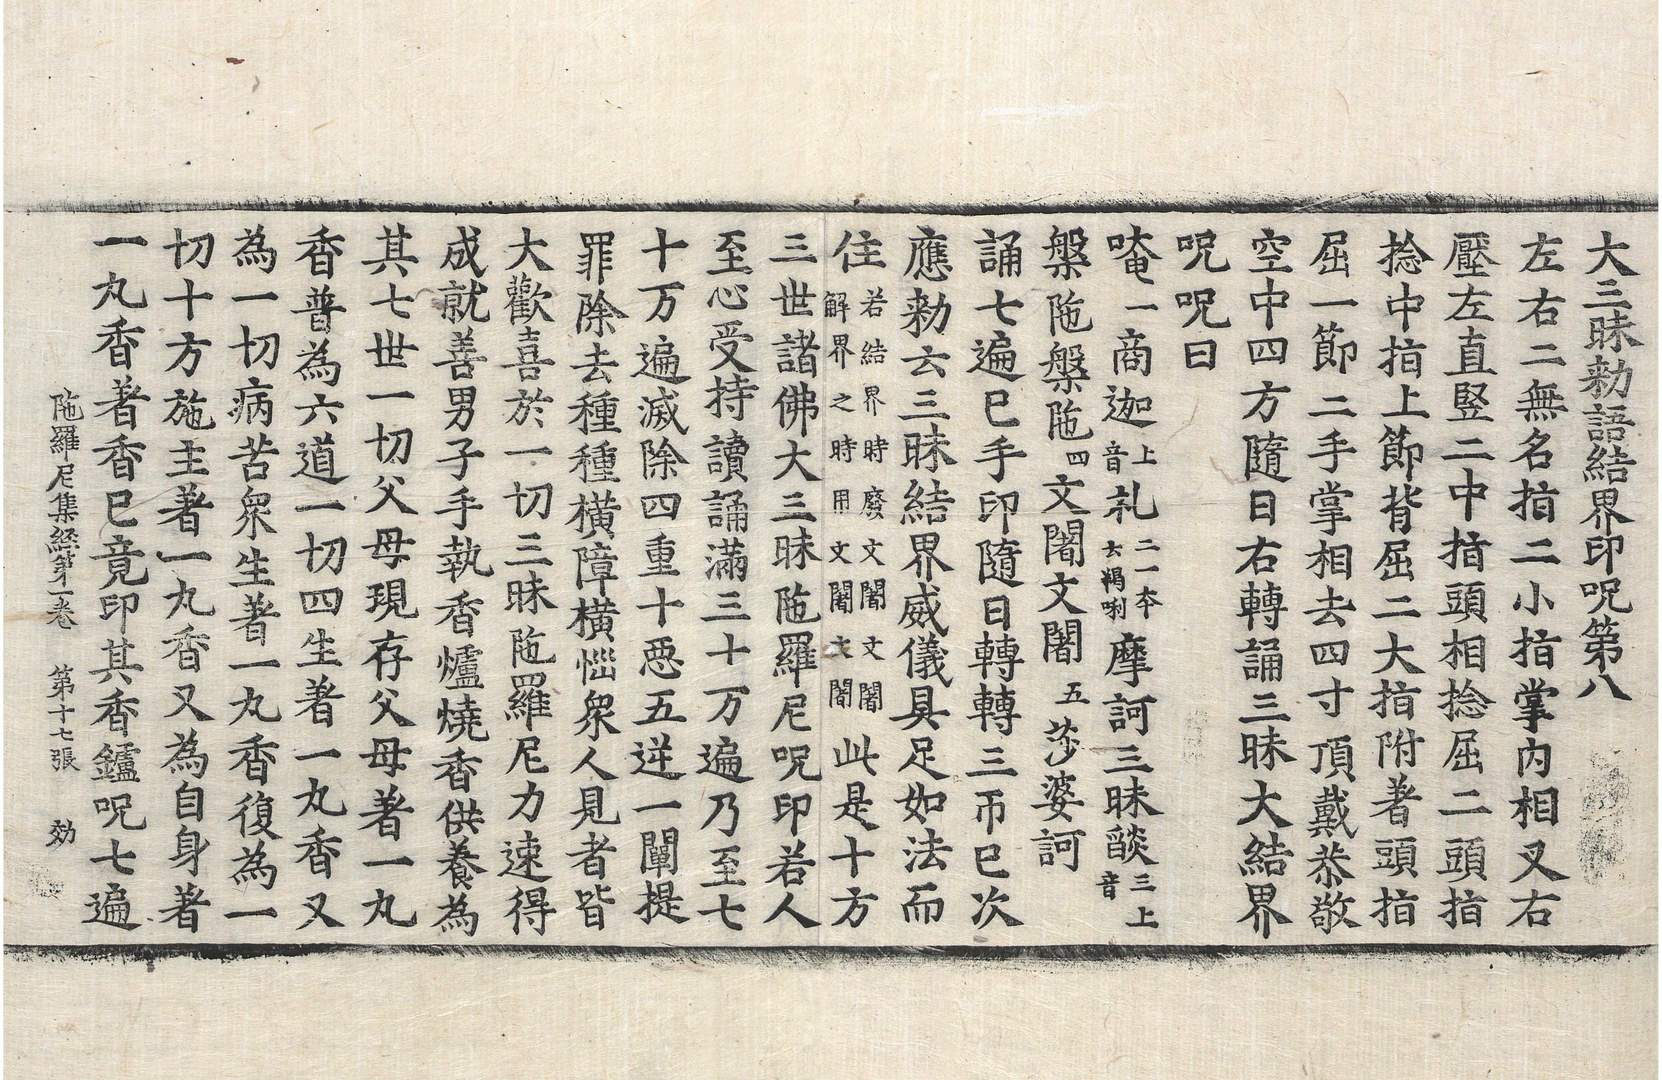 大三昧勅語結界印呪第八
左右二無名指二小指掌內相叉右
壓左直竪二中指頭相捻屈二頭指
捻中指上節背屈二大指附著頭指
屈一節二手掌相去四寸頂戴恭敬
空中四方隨日右轉誦三昧大結界
呪呪曰
唵一商迦上音礼二一本云羯唎摩訶三昧燄三上音
槃陁槃陁四文闍文闍五莎婆訶
誦七遍已手印隨日轉轉三帀已次
應勅云三昧結界威儀具足如法而
住若結界時廢文闍文闍解界之時用文闍文闍此是十方
三世諸佛大三昧陁羅尼呪印若人
至心受持讀誦滿三十万遍乃至七
十万遍滅除四重十惡五逆一闡提
罪除去種種橫障橫惱衆人見者皆
大歡喜於一切三昧陁羅尼力速得
成就善男子手執香爐燒香供養為
其七世一切父母現存父母著一丸
香普為六道一切四生著一丸香又
為一切病苦衆生著一丸香復為一
切十方施主著一丸香又為自身著
一丸香著香已竟印其香鑪呪七遍
陁羅尼集經第一卷 第十七張 効